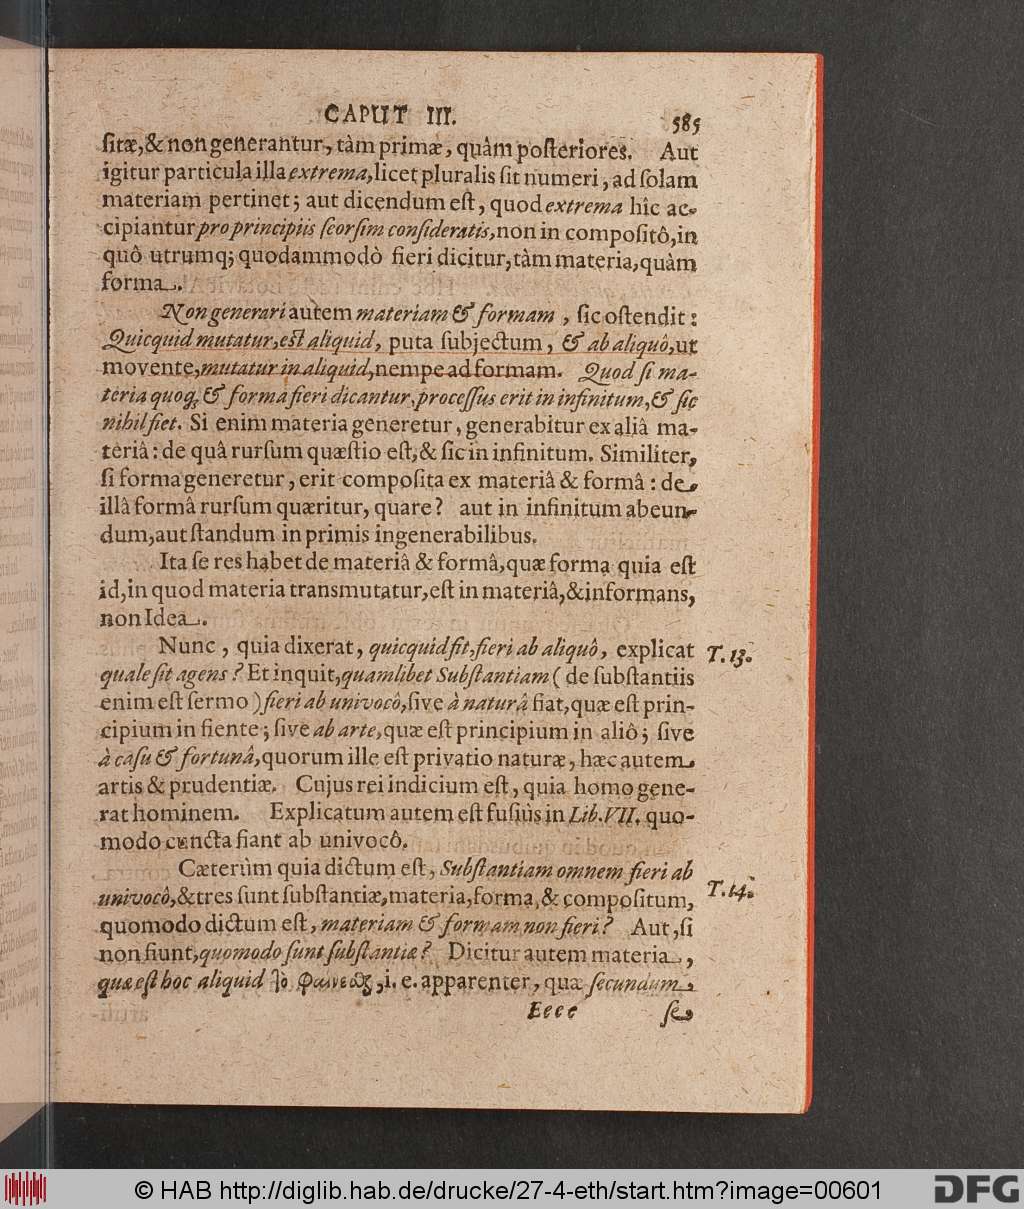 CAPUT III.
585
ſitæ, & non generantur, tàm primæ, quàm poſteriores. Aut
igitur particula illa extrema, licet pluralis ſit numeri, ad ſolam
materiam pertinet; aut dicendum eſt, quod extrema hîc ac-
cipiantur pro principiis ſeorſim conſideratis, non in compoſitô, in
quô utrumq; quodammodò fieri dicitur, tàm materia, quàm
forma.
Non generari autem materiam & formam, ſic oſtendit:
Quicquid mutatur, eſt aliquid, puta ſubjectum, & ab aliquô, ut
movente, mutatur in aliquid, nempe ad formam. Quod ſi ma-
teria quoq; & forma fieri dicantur, proceſſus erit in infinitum, & ſic
nihil fiet. Si enim materia generetur, generabitur ex aliâ ma-
teriâ: de quâ rurſum quæſtio eſt, & ſic in infinitum. Similiter,
ſi forma generetur, erit compoſita ex materiâ & formâ: de
illâ formâ rurſum quæritur, quare? aut in infinitum abeun-
dum, aut ſtandum in primis ingenerabilibus.
Ita ſe res habet de materiâ & formâ, quæ forma quia eſt
id, in quod materia transmutatur, eſt in materiâ, & informans,
non Idea.
Nunc, quia dixerat, quicquid fit, fieri ab aliquô, explicat
T. 13.
quale ſit agens? Et inquit, quamlibet Subſtantiam (de ſubſtantiis
enim eſt ſermo) fieri ab univocô, ſive à naturâ fiat, quæ eſt prin-
cipium in fiente; ſive ab arte, quæ eſt principium in aliô; ſive
à caſu & fortunâ, quorum ille eſt privatio naturæ, hæc autem
artis & prudentiæ. Cujus rei indicium eſt, quia homo gene-
rat hominem. Explicatum autem eſt fuſiùs in Lib. VII. quo-
modo cuncta fiant ab univocô.
Cæterùm quia dictum eſt, Subſtantiam omnem fieri ab
T. 14.
univocô, & tres ſunt ſubſtantiæ, materia, forma, & compoſitum,
quomodo dictum eſt, materiam & formam non fieri? Aut, ſi
non fiunt, quomodo ſunt ſubſtantiæ? Dicitur autem materia,
quæ eſt hoc aliquid , i. e. apparenter, quæ ſecundum
Eeee
ſe
© HAB http://diglib.hab.de/drucke/27-4-eth/start.htm?image=00601
DFG